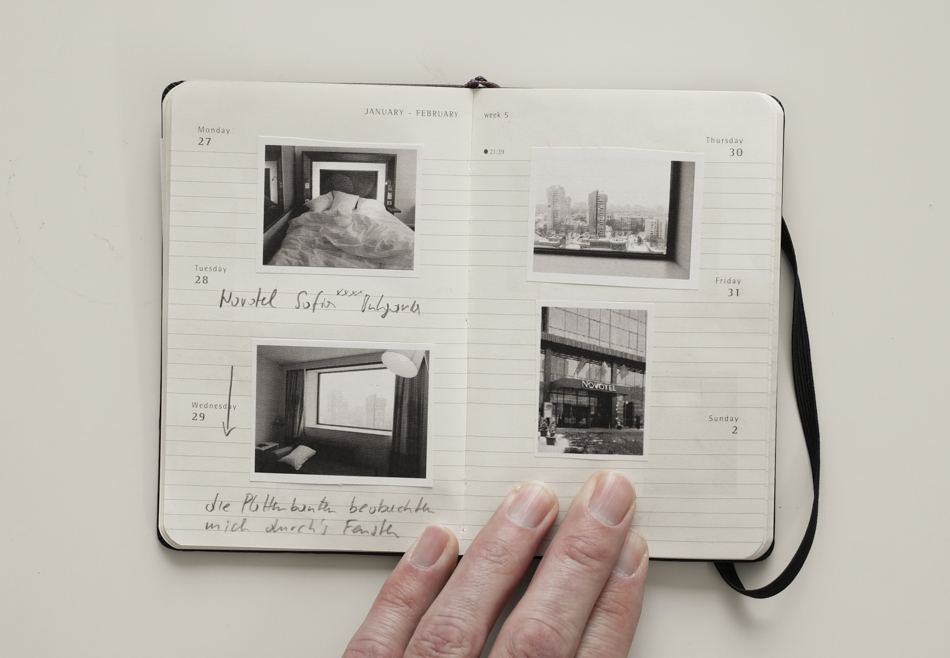 JANUARY - FEBRUARY
Monday
27
Tuesday
28
Novotel Sofia xxxx Bulgaria
Wednesday
29
die Plattenbauten beobachten
mich durch's Fenster
week 5
21:39
Thursday
30
Friday
31
NOVOTEL
Sunday
2